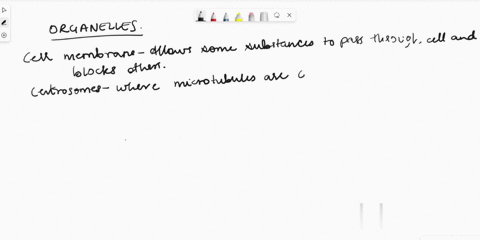 ORGANELLES.
Cell membrane - allows some substances to pass through, cell and
blocks others.
Centrosomes - where microtubules are c